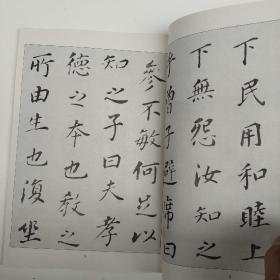 下民用和睦上
下無怨汝知之
乎曾子避席曰
參不敏何足以
知之子曰夫孝
德之本也教之
所由生也復坐